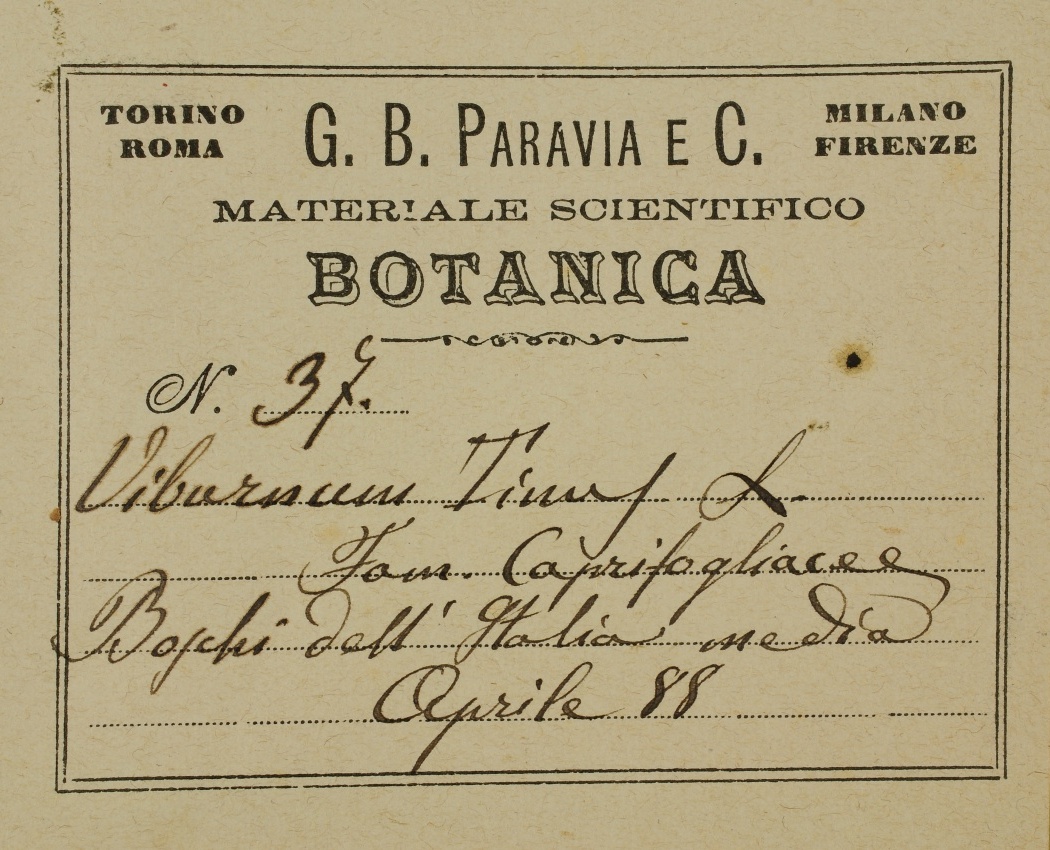 TORINO G. B. PARAVIA E C. MILANO
ROMA FIRENZE
MATERIALE SCIENTIFICO
BOTANICA
N. 37.
Viburnum Tinus L.
Fam. Caprifogliacee
Boschi dell' Italia media
Aprile 88